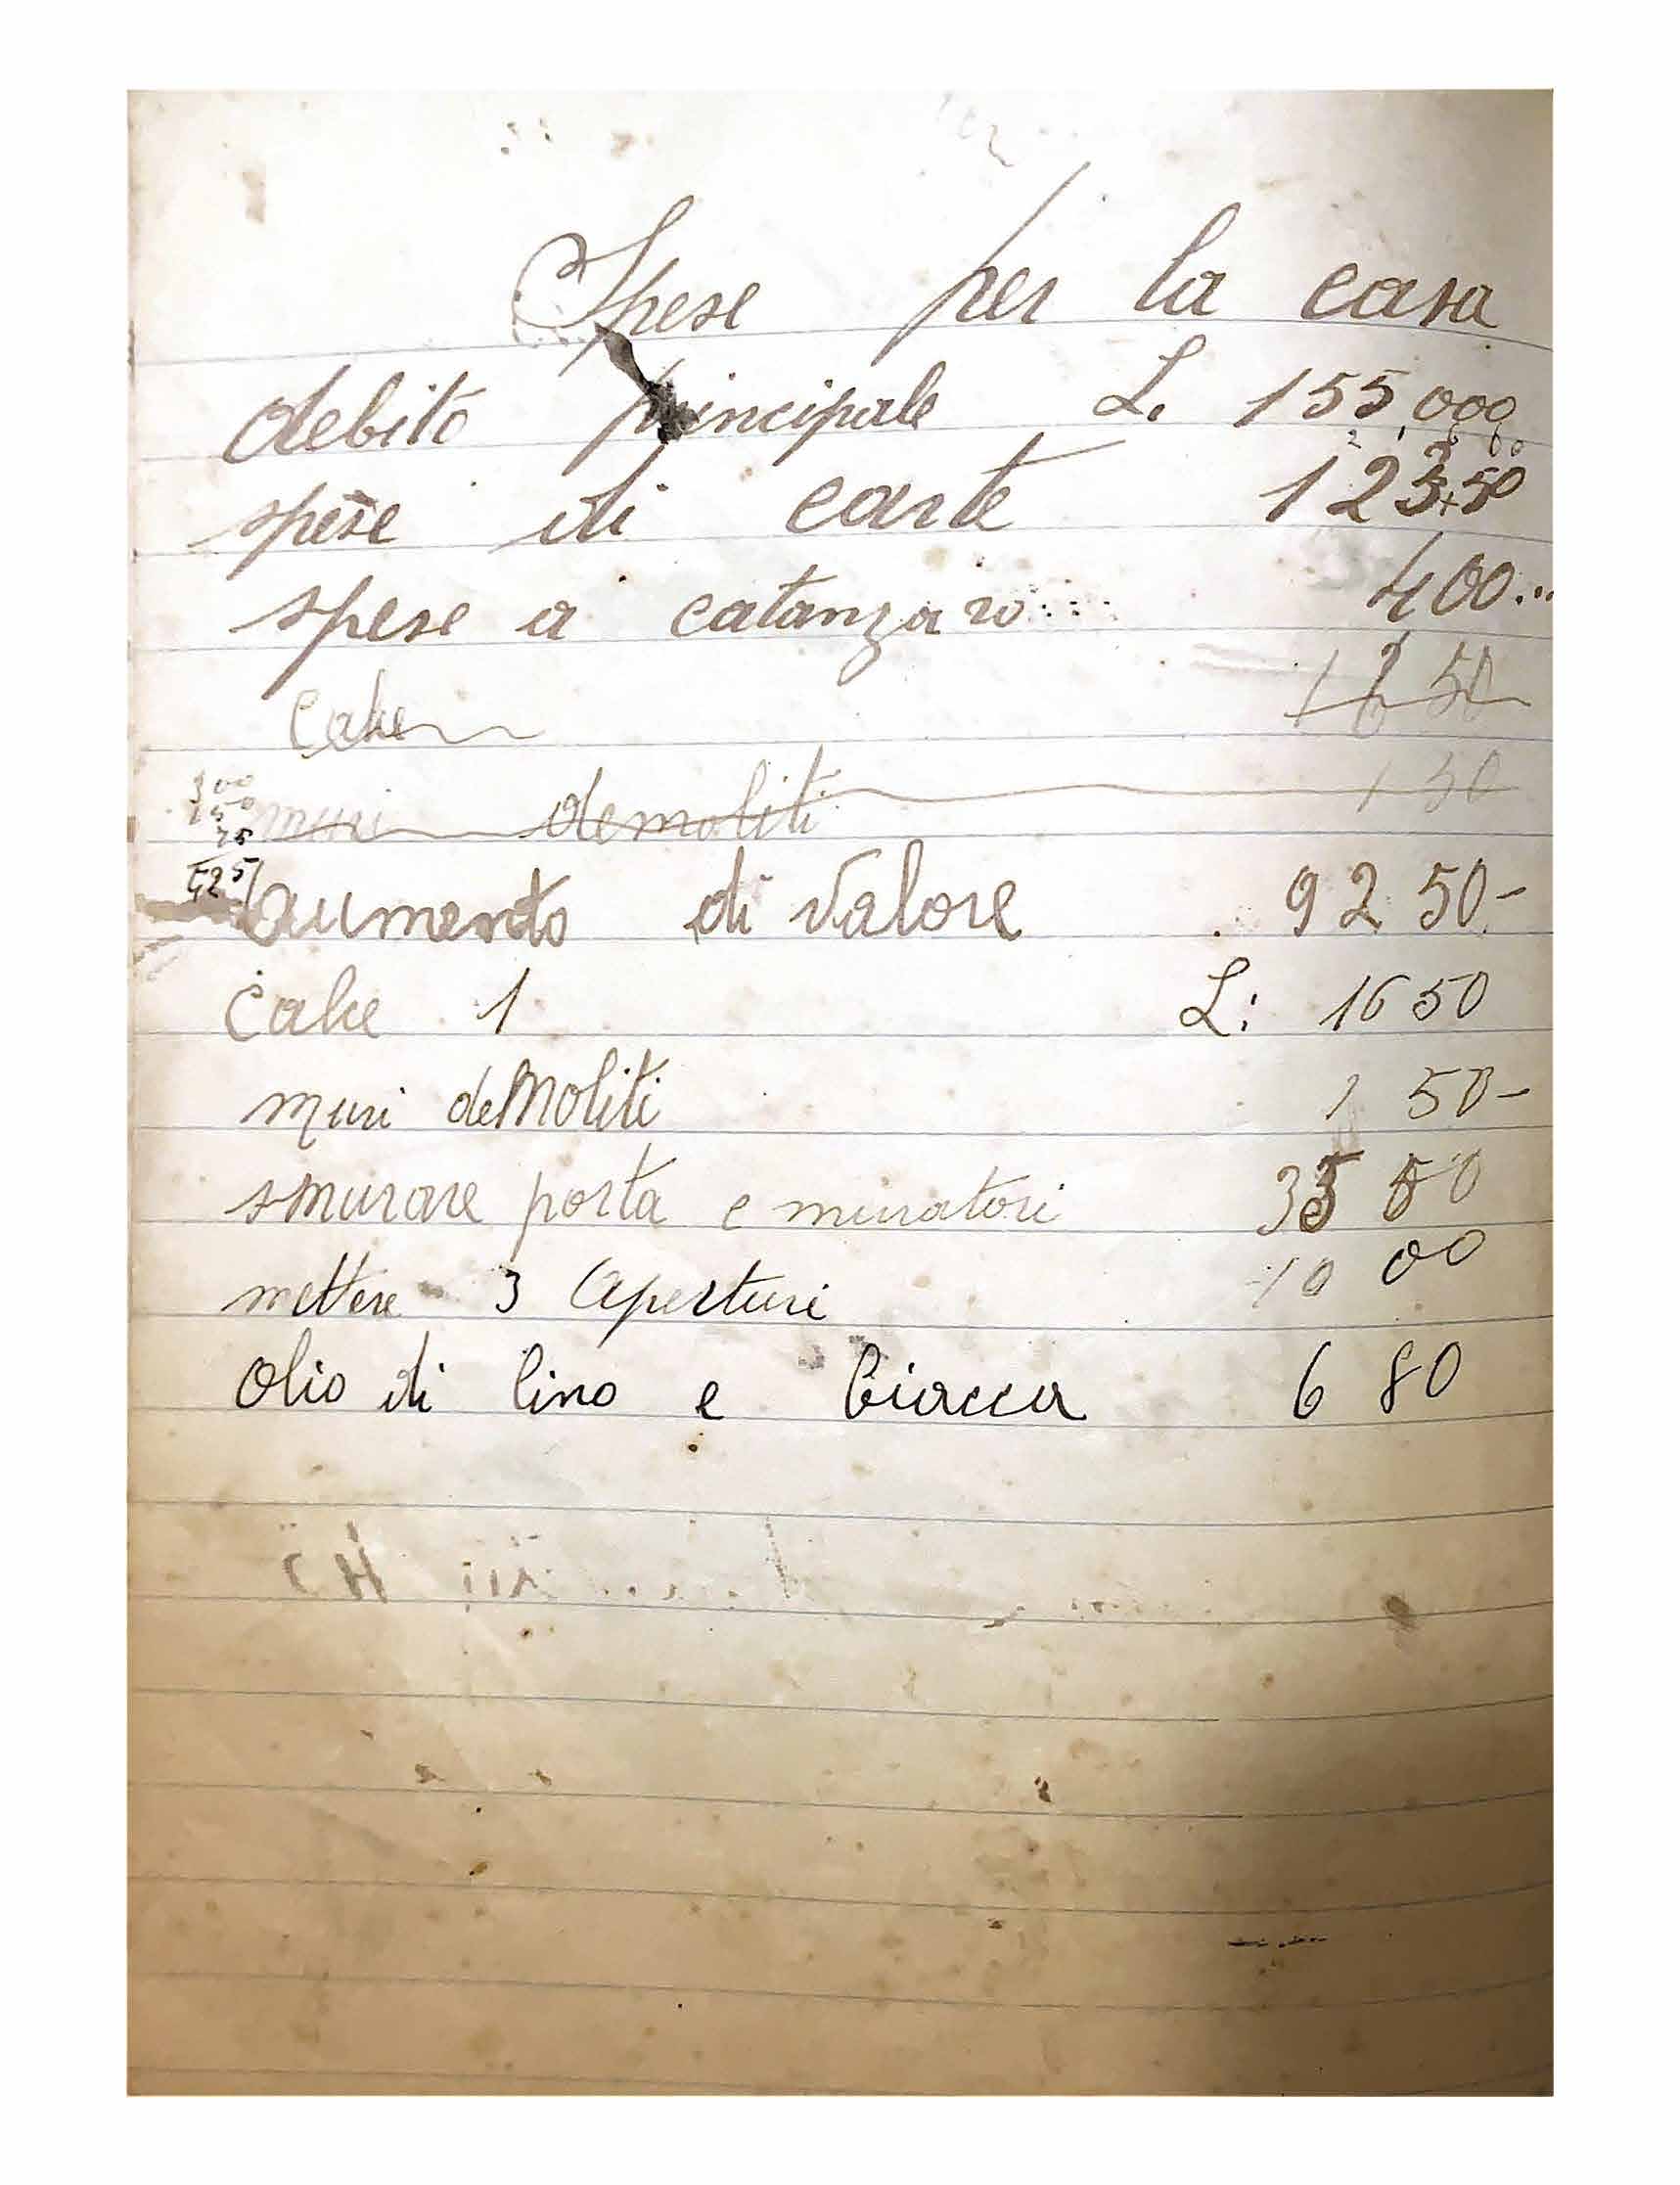 Spese per la casa
debito principale L. 155,000
spese di carte 123.50
spese a catanzaro 400...
Calce 1650
300
150
75
525
muri demoliti 150
aumento di valore 9250-
Calce 1 L: 1650
muri demoliti 150-
smurare porta e muratori 3550
mettere 3 aperturi 1000
Olio di lino e biacca 680